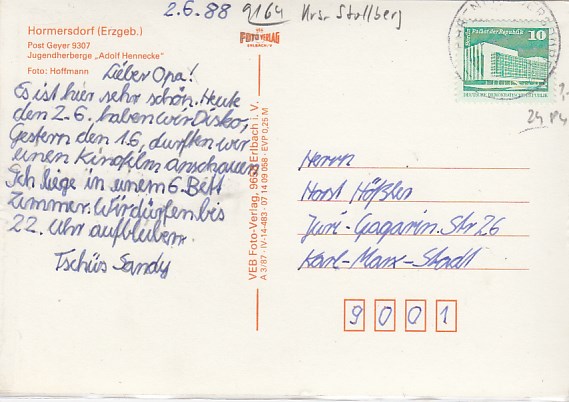 2.6.88 9164 Krsr Stollberg
Hormersdorf (Erzgeb.)
Post Geyer 9307
Jugendherberge „Adolf Hennecke“
Foto: Hoffmann
FOTO VERLAG
ERLBACH/V
Lieber Opa!
Es ist hier sehr schön. Heute
den 2.6. haben wir Disko,
Gestern den 1.6, durften wir
einen Kinofilm anschauen
Ich liege in einem 6. Bett
Zimmer. Wir dürfen bis
22. Uhr aufbleiben.
Tschüs Sandy
VEB Foto-Verlag, 9652 Erlbach i. V.
A 3/87 · IV-14-483 · 07 14 09 058 · EVP 0,25 M
Palast der Republik
10
DEUTSCHE DEMOKRATISCHE REPUBLIK
Herrn
Horst Hößler
Juri-Gagarin. Str 26
Karl-Marx-Stadt
9 0 0 1